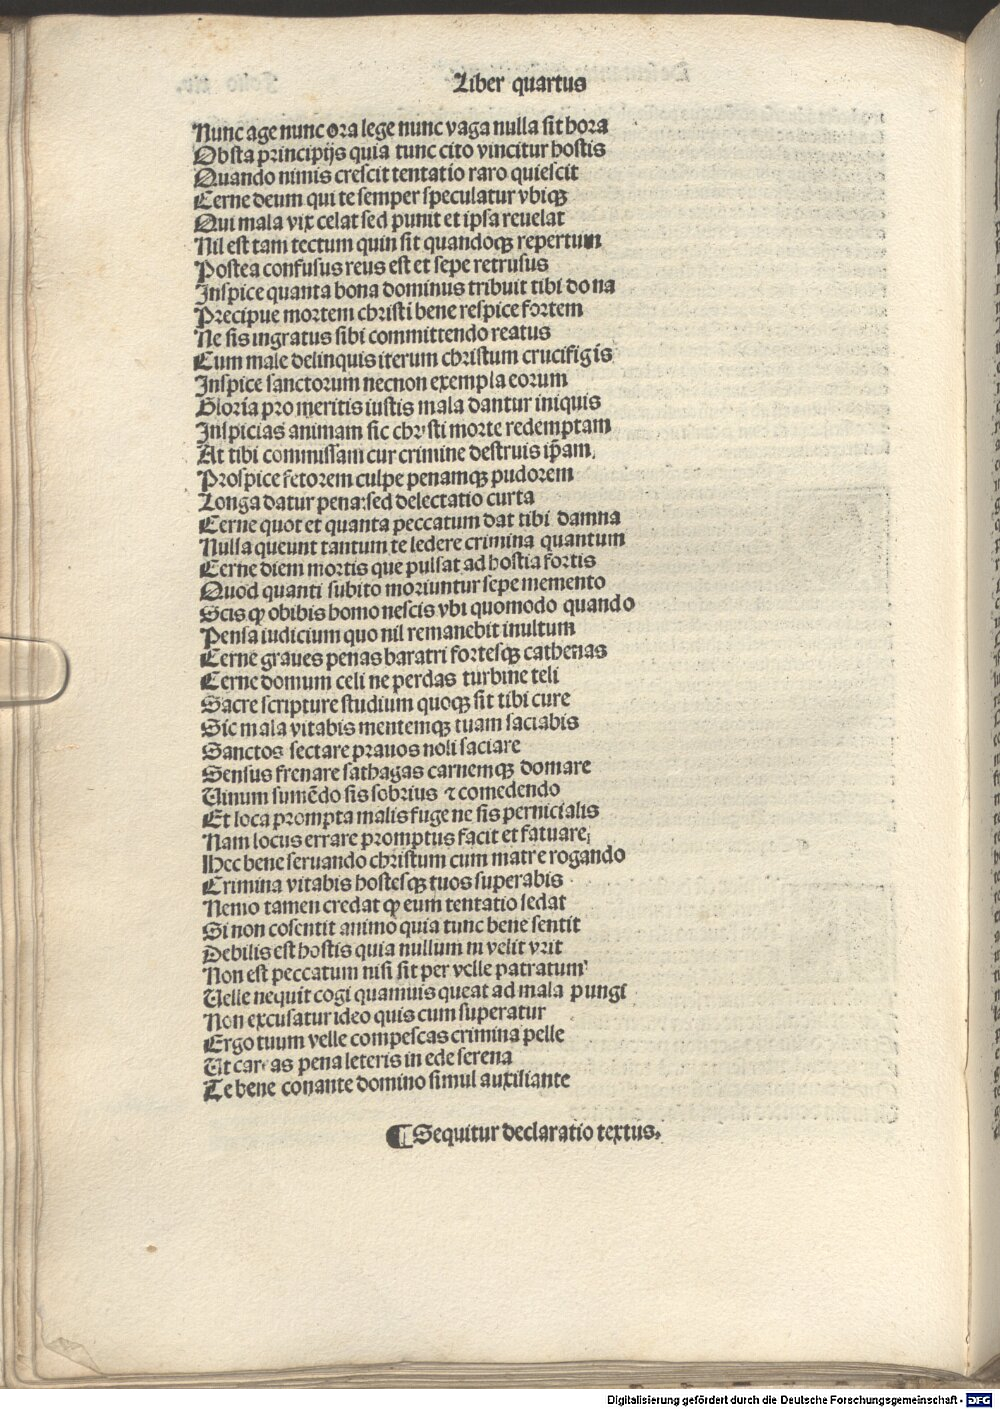 Liber quartus
Nunc age nunc ora lege nunc vaga nulla sit hora
Obsta principijs quia tunc cito vincitur hostis
Quando nimis crescit tentatio raro quiescit
Cerne deum qui te semper speculatur vbiqꝫ
Qui mala vix celat sed punit et ipsa reuelat
Nil est tam tectum quin sit quandoqꝫ repertum
Postea confusus reus est et sepe retrusus
Inspice quanta bona dominus tribuit tibi dona
Precipue mortem christi bene respice fortem
Ne sis ingratus sibi committendo reatus
Cum male delinquis iterum christum crucifigis
Inspice sanctorum necnon exempla eorum
Gloria pro meritis iustis mala dantur iniquis
Inspicias animam sic christi morte redemptam
At tibi commissam cur crimine destruis ip̄am,
Prospice fetorem culpe penamqꝫ pudorem
Longa datur pena:sed delectatio curta
Cerne quot et quanta peccatum dat tibi damna
Nulla queunt tantum te ledere crimina quantum
Cerne diem mortis que pulsat ad hostia fortis
Quod quanti subito moriuntur sepe memento
Scis ꝙ obibis homo nescis vbi quomodo quando
Pensa iudicium quo nil remanebit inultum
Cerne graues penas baratri fortesqꝫ cathenas
Cerne domum celi ne perdas turbine teli
Sacre scripture studium quoqꝫ sit tibi cure
Sic mala vitabis mentemqꝫ tuam saciabis
Sanctos sectare prauos noli saciare
Sensus frenare sathagas carnemqꝫ domare
Uinum sumēdo sis sobrius ⁊ comedendo
Et loca prompta malis fuge ne sis pernicialis
Nam locus errare promptus facit et fatuare,
Hec bene seruando christum cum matre rogando
Crimina vitabis hostesqꝫ tuos superabis
Nemo tamen credat ꝙ eum tentatio ledat
Si non cosentit animo quia tunc bene sentit
Debilis est hostis quia nullum ni velit vrit
Non est peccatum nisi sit per velle patratum
Uelle nequit cogi quamuis queat ad mala pungi
Non excusatur ideo quis cum superatur
Ergo tuum velle compescas crimina pelle
Ut careas pena leteris in ede serena
Te bene conante domino simul auxiliante
¶ Sequitur declaratio textus.
Digitalisierung gefördert durch die Deutsche Forschungsgemeinschaft - DFG